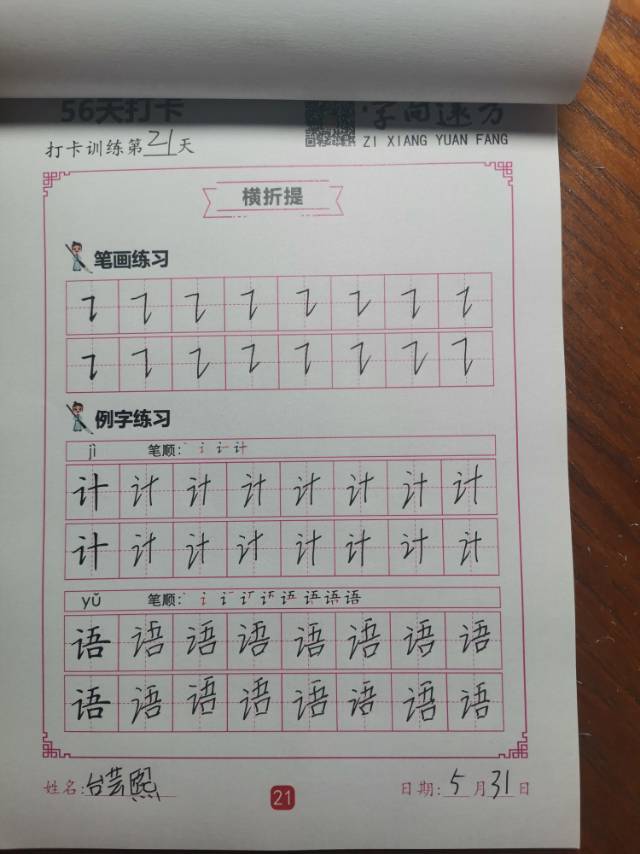 56天打卡
字向速方
ZI XIANG YUAN FANG
打卡训练第21天
横折提
笔画练习
㇊ ㇊ ㇊ ㇊ ㇊ ㇊ ㇊ ㇊
㇊ ㇊ ㇊ ㇊ ㇊ ㇊ ㇊ ㇊
例字练习
jì 笔顺:
计 计 计 计 计 计 计 计
计 计 计 计 计 计 计 计
yǔ 笔顺:
语 语 语 语 语 语 语 语
语 语 语 语 语 语 语 语
姓名:台芸熙
21
日期:5月31日